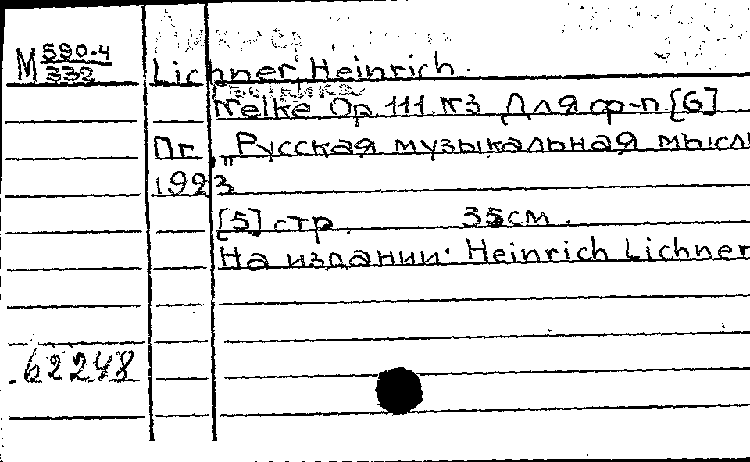 M 590-4
332
Lichner, Heinrich.
Nelke Op. 111 N3 Для ф-п [6]
Пг. "Русская музыкальная мысль
1923
[5] стр. 35 см.
На издании: Heinrich Lichner
62248